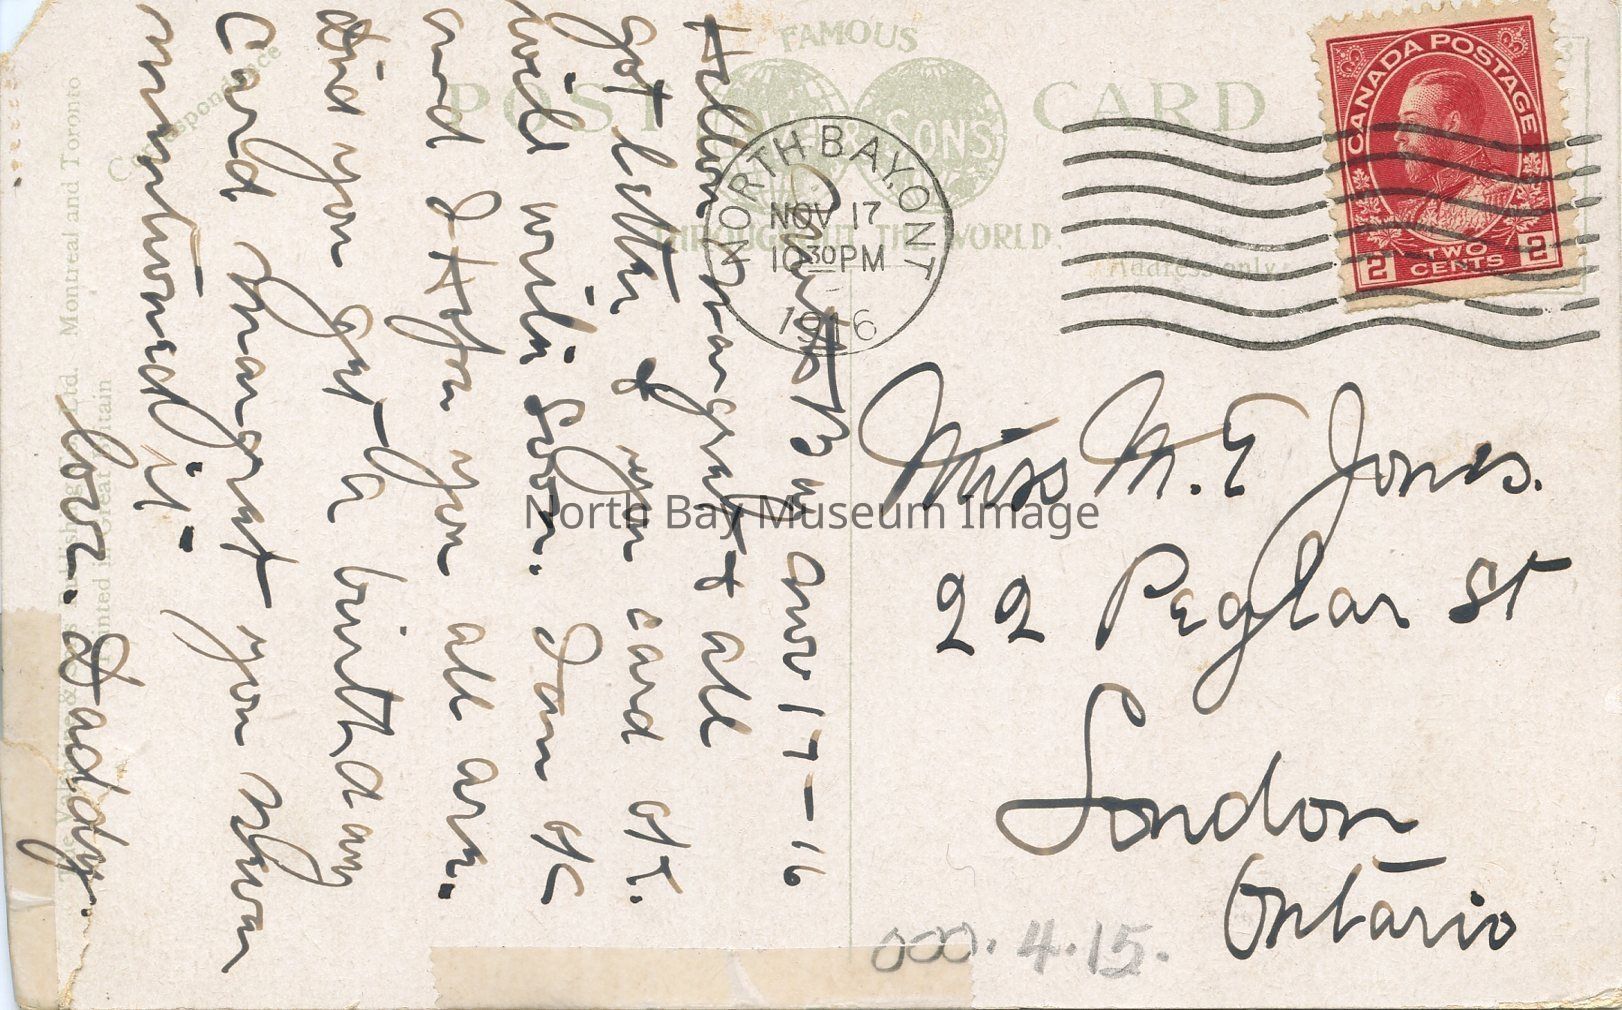 FAMOUS
POST CARD
SONS
THROUGHOUT THE WORLD
Correspondence
Address only
CANADA POSTAGE
2 TWO CENTS 2
NORTH BAY, ONT
NOV 17
10 30 PM
1916
North Bay Nov 17-16
Hellow Margret all
got letter of you card ok.
will write soon. I am ok
and I Hope you all are.
Did you get a birthday
Card Margret you never
mentioned it.
Love. Daddy.
Miss M. E Jones.
22 Peglar St
London
Ontario
000.4.15.
North Bay Museum Image
Publishing Ltd. Montreal and Toronto
Printed in Great Britain